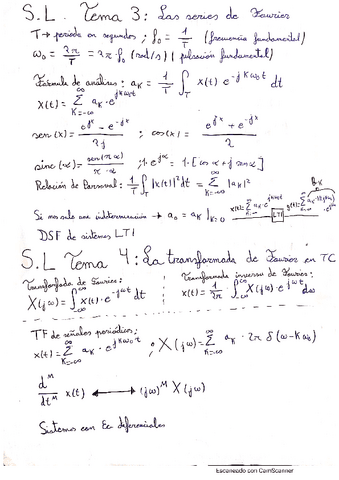 S.L. Tema 3: Las series de Fourier
T → periodo en segundos ; f₀ = 1/T (frecuencia fundamental)
ω₀ = 2π/T = 2π f₀ (rad/s) (pulsación fundamental)
Fórmula de análisis: aₖ = 1/T ∫_T x(t) e^{-jkω₀t} dt
x(t) = Σ_{k=-∞}^{∞} aₖ · e^{jkω₀t}
sen(x) = (e^{jx} - e^{-jx})/2j ; cos(x) = (e^{jx} + e^{-jx})/2
sinc(α) = sen(πα)/(π·α) ; 1·e^{jα} = 1·[cos α + j sen α]
Relación de Parseval: 1/T ∫_T |x(t)|² dt = Σ_{k=-∞}^{∞} |aₖ|²
Si nos sale una indeterminación → a₀ = aₖ|_{k=0}
LTI
DSF de sistemas LTI
S.L Tema 4: La transformada de Fourier en TC
Transformada de Fourier: Transformada inversa de Fourier:
X(jω) = ∫_{-∞}^{∞} x(t) · e^{-jωt} dt x(t) = 1/2π ∫_{-∞}^{∞} X(jω) · e^{jωt} dω
TF de señales periódicas:
x(t) = Σ_{k=-∞}^{∞} aₖ · e^{jkω₀t} ; X(jω) = Σ_{k=-∞}^{∞} aₖ · 2π δ(ω - kω₀)
d^M/dt^M x(t) ⟷ (jω)^M X(jω)
Sistemas con Ec diferenciales
Escaneado con CamScanner